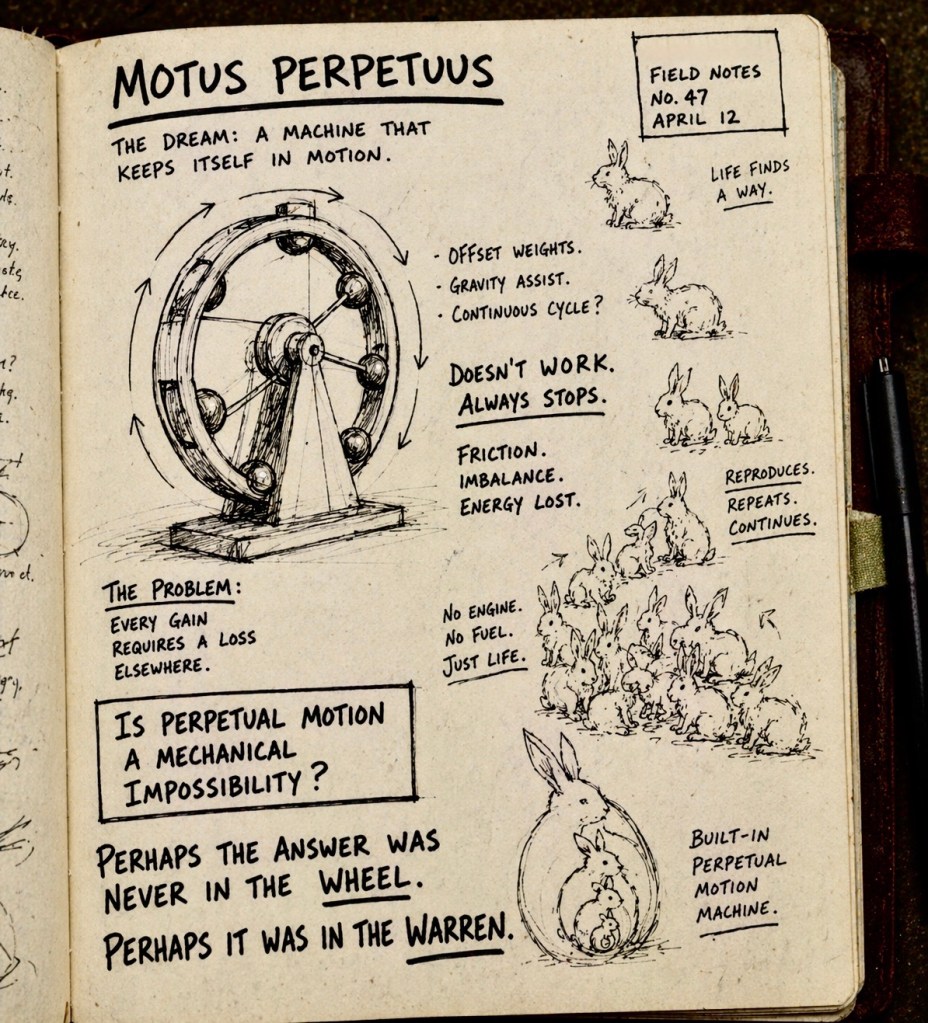 MOTUS PERPETUUS
THE DREAM: A MACHINE THAT
KEEPS ITSELF IN MOTION.
FIELD NOTES
NO. 47
APRIL 12
LIFE FINDS
A WAY.
- OFFSET WEIGHTS.
- GRAVITY ASSIST.
- CONTINUOUS CYCLE?
DOESN'T WORK.
ALWAYS STOPS.
FRICTION.
IMBALANCE.
ENERGY LOST.
REPRODUCES.
REPEATS.
CONTINUES.
THE PROBLEM:
EVERY GAIN
REQUIRES A LOSS
ELSEWHERE.
NO ENGINE.
NO FUEL.
JUST LIFE.
IS PERPETUAL MOTION
A MECHANICAL
IMPOSSIBILITY?
PERHAPS THE ANSWER WAS
NEVER IN THE WHEEL.
PERHAPS IT WAS IN THE WARREN.
BUILT-IN
PERPETUAL
MOTION
MACHINE.